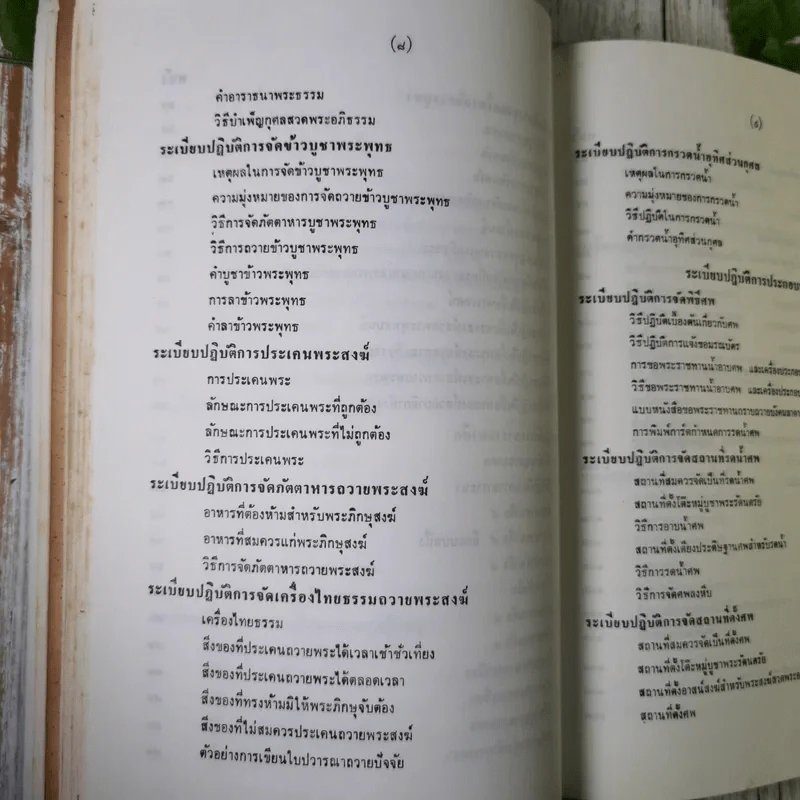 (๘)
คำอาราธนาพระธรรม
วิธีบำเพ็ญกุศลสวดพระอภิธรรม
ระเบียบปฏิบัติการจัดข้าวบูชาพระพุทธ
เหตุผลในการจัดข้าวบูชาพระพุทธ
ความมุ่งหมายของการจัดถวายข้าวบูชาพระพุทธ
วิธีการจัดภัตตาหารบูชาพระพุทธ
วิธีการถวายข้าวบูชาพระพุทธ
คำบูชาข้าวพระพุทธ
การลาข้าวพระพุทธ
คำลาข้าวพระพุทธ
ระเบียบปฏิบัติการประเคนพระสงฆ์
การประเคนพระ
ลักษณะการประเคนพระที่ถูกต้อง
ลักษณะการประเคนพระที่ไม่ถูกต้อง
วิธีการประเคนพระ
ระเบียบปฏิบัติการจัดภัตตาหารถวายพระสงฆ์
อาหารที่ต้องห้ามสำหรับพระภิกษุสงฆ์
อาหารที่สมควรแก่พระภิกษุสงฆ์
วิธีการจัดภัตตาหารถวายพระสงฆ์
ระเบียบปฏิบัติการจัดเครื่องไทยธรรมถวายพระสงฆ์
เครื่องไทยธรรม
สิ่งของที่ประเคนถวายพระได้เวลาเช้าชั่วเที่ยง
สิ่งของที่ประเคนถวายพระได้ตลอดเวลา
สิ่งของที่ทรงห้ามมิให้พระภิกษุจับต้อง
สิ่งของที่ไม่สมควรประเคนถวายพระสงฆ์
ตัวอย่างการเขียนใบปวารณาถวายปัจจัย
(๙)
ระเบียบปฏิบัติการกรวดน้ำอุทิศส่วนกุศล
เหตุผลในการกรวดน้ำ
ความมุ่งหมายของการกรวดน้ำ
วิธีปฏิบัติในการกรวดน้ำ
คำกรวดน้ำอุทิศส่วนกุศล
ระเบียบปฏิบัติการประกอบ
ระเบียบปฏิบัติการจัดพิธีศพ
วิธีปฏิบัติเบื้องต้นเกี่ยวกับศพ
วิธีปฏิบัติการแจ้งขอมรณบัตร
การขอพระราชทานน้ำอาบศพ และเครื่องประกอบ
วิธีขอพระราชทานน้ำอาบศพ และเครื่องประกอบ
แบบหนังสือขอพระราชทานกราบถวายบังคมลาตาย
การพิมพ์การ์ดกำหนดการรดน้ำศพ
ระเบียบปฏิบัติการจัดสถานที่รดน้ำศพ
สถานที่สมควรจัดเป็นที่รดน้ำศพ
สถานที่ตั้งโต๊ะหมู่บูชาพระรัตนตรัย
วิธีการอาบน้ำศพ
สถานที่ตั้งเตียงประดิษฐานศพสำหรับรดน้ำ
วิธีการรดน้ำศพ
วิธีการจัดศพลงหีบ
ระเบียบปฏิบัติการจัดสถานที่ตั้งศพ
สถานที่สมควรจัดเป็นที่ตั้งศพ
สถานที่ตั้งโต๊ะหมู่บูชาพระรัตนตรัย
สถานที่ตั้งอาสน์สงฆ์สำหรับพระสงฆ์สวดพระอภิ
สถานที่ตั้งศพ